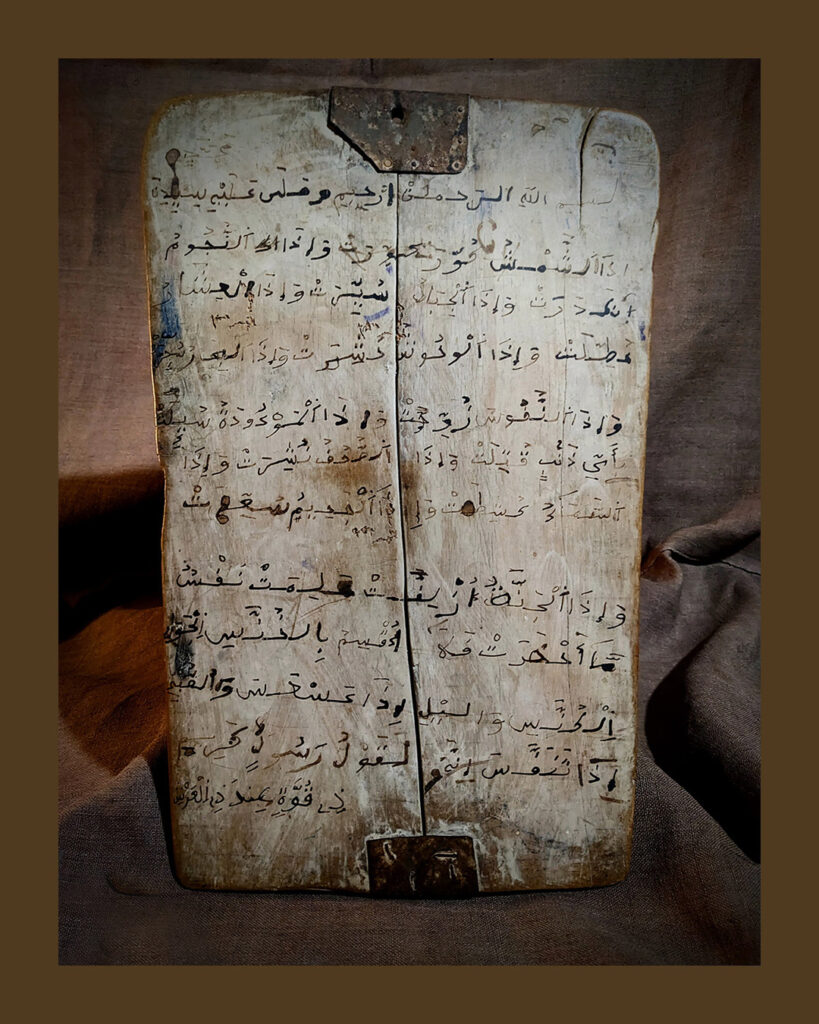 بسم الله الرحمن الرحيم وصلى
اذَا الشَّمْسُ كُوِّرَتْ وَإِذَا النُّجُومُ
انكَدَرَتْ وَإِذَا الْجِبَالُ سُيِّرَتْ وَإِذَا الْعِشَارُ
عُطِّلَتْ وَإِذَا الْوُحُوشُ حُشِرَتْ وَإِذَا البحار
وَإِذَا النُّفُوسُ زُوِّجَتْ وَإِذَا الْمَوْءُودَةُ سُيِلَتْ
بِأَيِّ ذَنْبٍ قُتِلَتْ وَإِذَا الصُّحُفُ نُشِرَتْ وَإِذَا
السَّمَاءُ كُشِطَتْ وَإِذَا الْجَحِيمُ سُعِّرَتْ
وَإِذَا الْجَنَّةُ أُزْلِفَتْ عَلِمَتْ نَفْسٌ
مَّا أَحْضَرَتْ فَلا أُقْسِمُ بِالْخُنَّسِ الْجَوَارِ
الْكُنَّسِ وَاليْلِ إِذَا عَسْعَسَ وَالصُّبْحِ
إِذَا تَنَفَّسَ إِنَّهُ لَقَوْلُ رَسُولٍ كَرِيمٍ
ذِي قُوَّةٍ عِندَ ذِي الْعَرْشِ